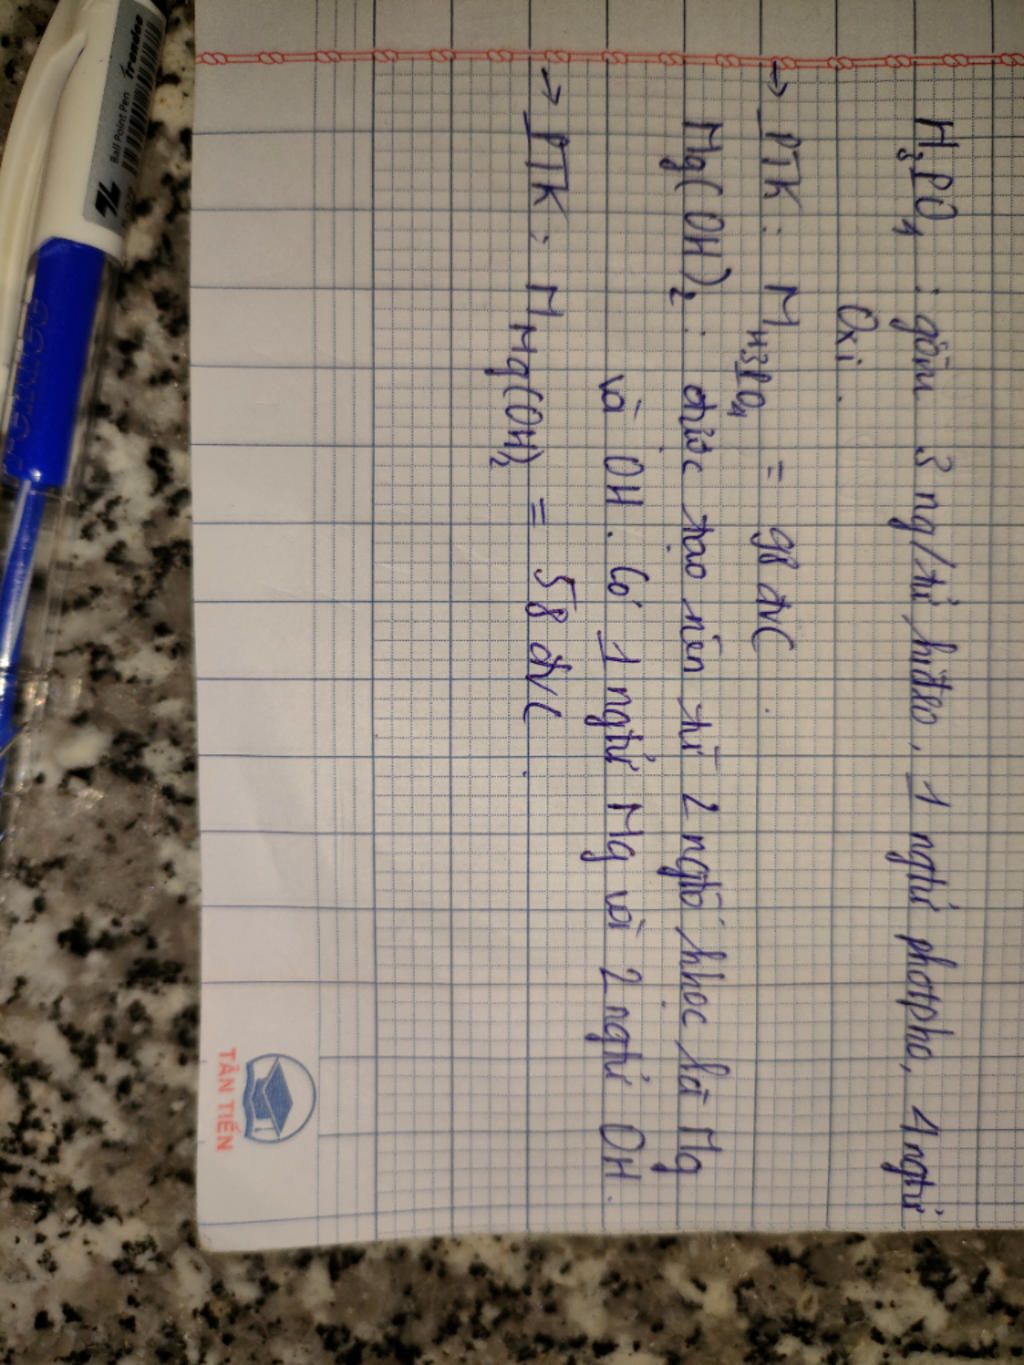 H₃PO₄ : gồm 3 ng/tử hiđro, 1 ngtử photpho, 4 ngtử
Oxi.
→ PTK: M H3PO₄ = 98 đvC.
Mg(OH)₂: được tạo nên từ 2 ngtố hhọc là Mg
và OH. Có 1 ngtử Mg và 2 ngtử OH.
→ PTK: M Mg(OH)₂ = 58 đvC.
TÂN TIẾN
Trendee
Ball Point Pen